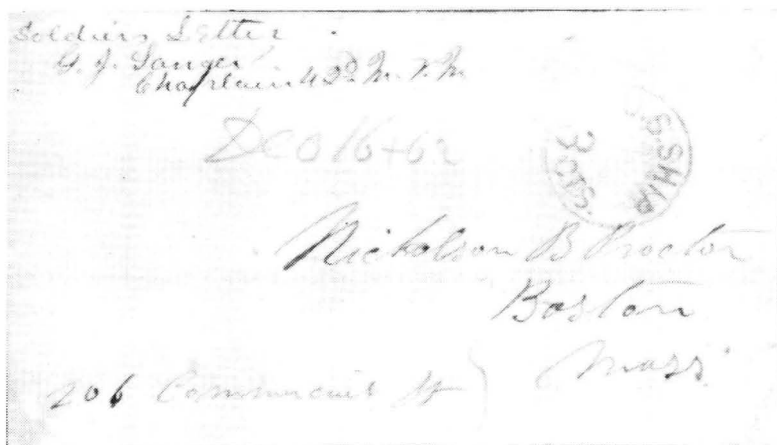 Soldiers Letter
G. J. Sanger
Chaplain 42d M. V. M
Dec 16 + 62
SHIP
3 CTS.
Nicholson B Proctor
Boston
Mass.
206 Commercial St